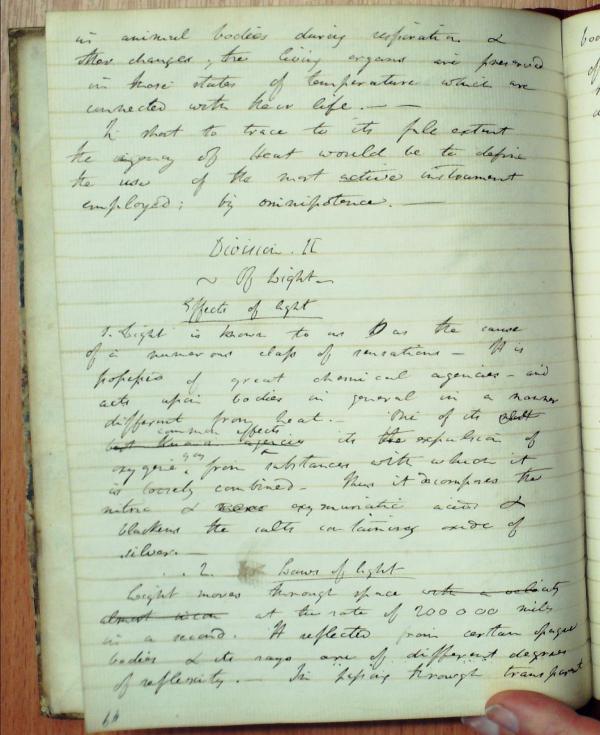 in animal bodies during respiration &
other changes, the living organs are preserved
in those states of temperature which are
connected with their life. — —
In short to trace to its full extent
the agency of Heat would be to define
the use of the most active instrument
employed; by omnipotence. —
Division. II
~ Of Light —
Effects of light
1. Light is known to us as the cause
of a numerous class of sensations — It is
possessed of great chemical agencies — and
acts upon bodies in general in a manner
different from heat. — One of its
common effects
best known agencies its the expulsion of
gas
oxygene from substances with which it
is loosely combined — Thus it decomposes the
nitric & oxymuriatic acids &
blackens the salts containing oxide of
silver. —
. 2. Laws of light
Light moves through space with a velocity
almost at the rate of 200000 miles
in a second. It reflected from certain opaque
bodies & its rays are of different degrees
of reflexity. — In passing through transparent
64